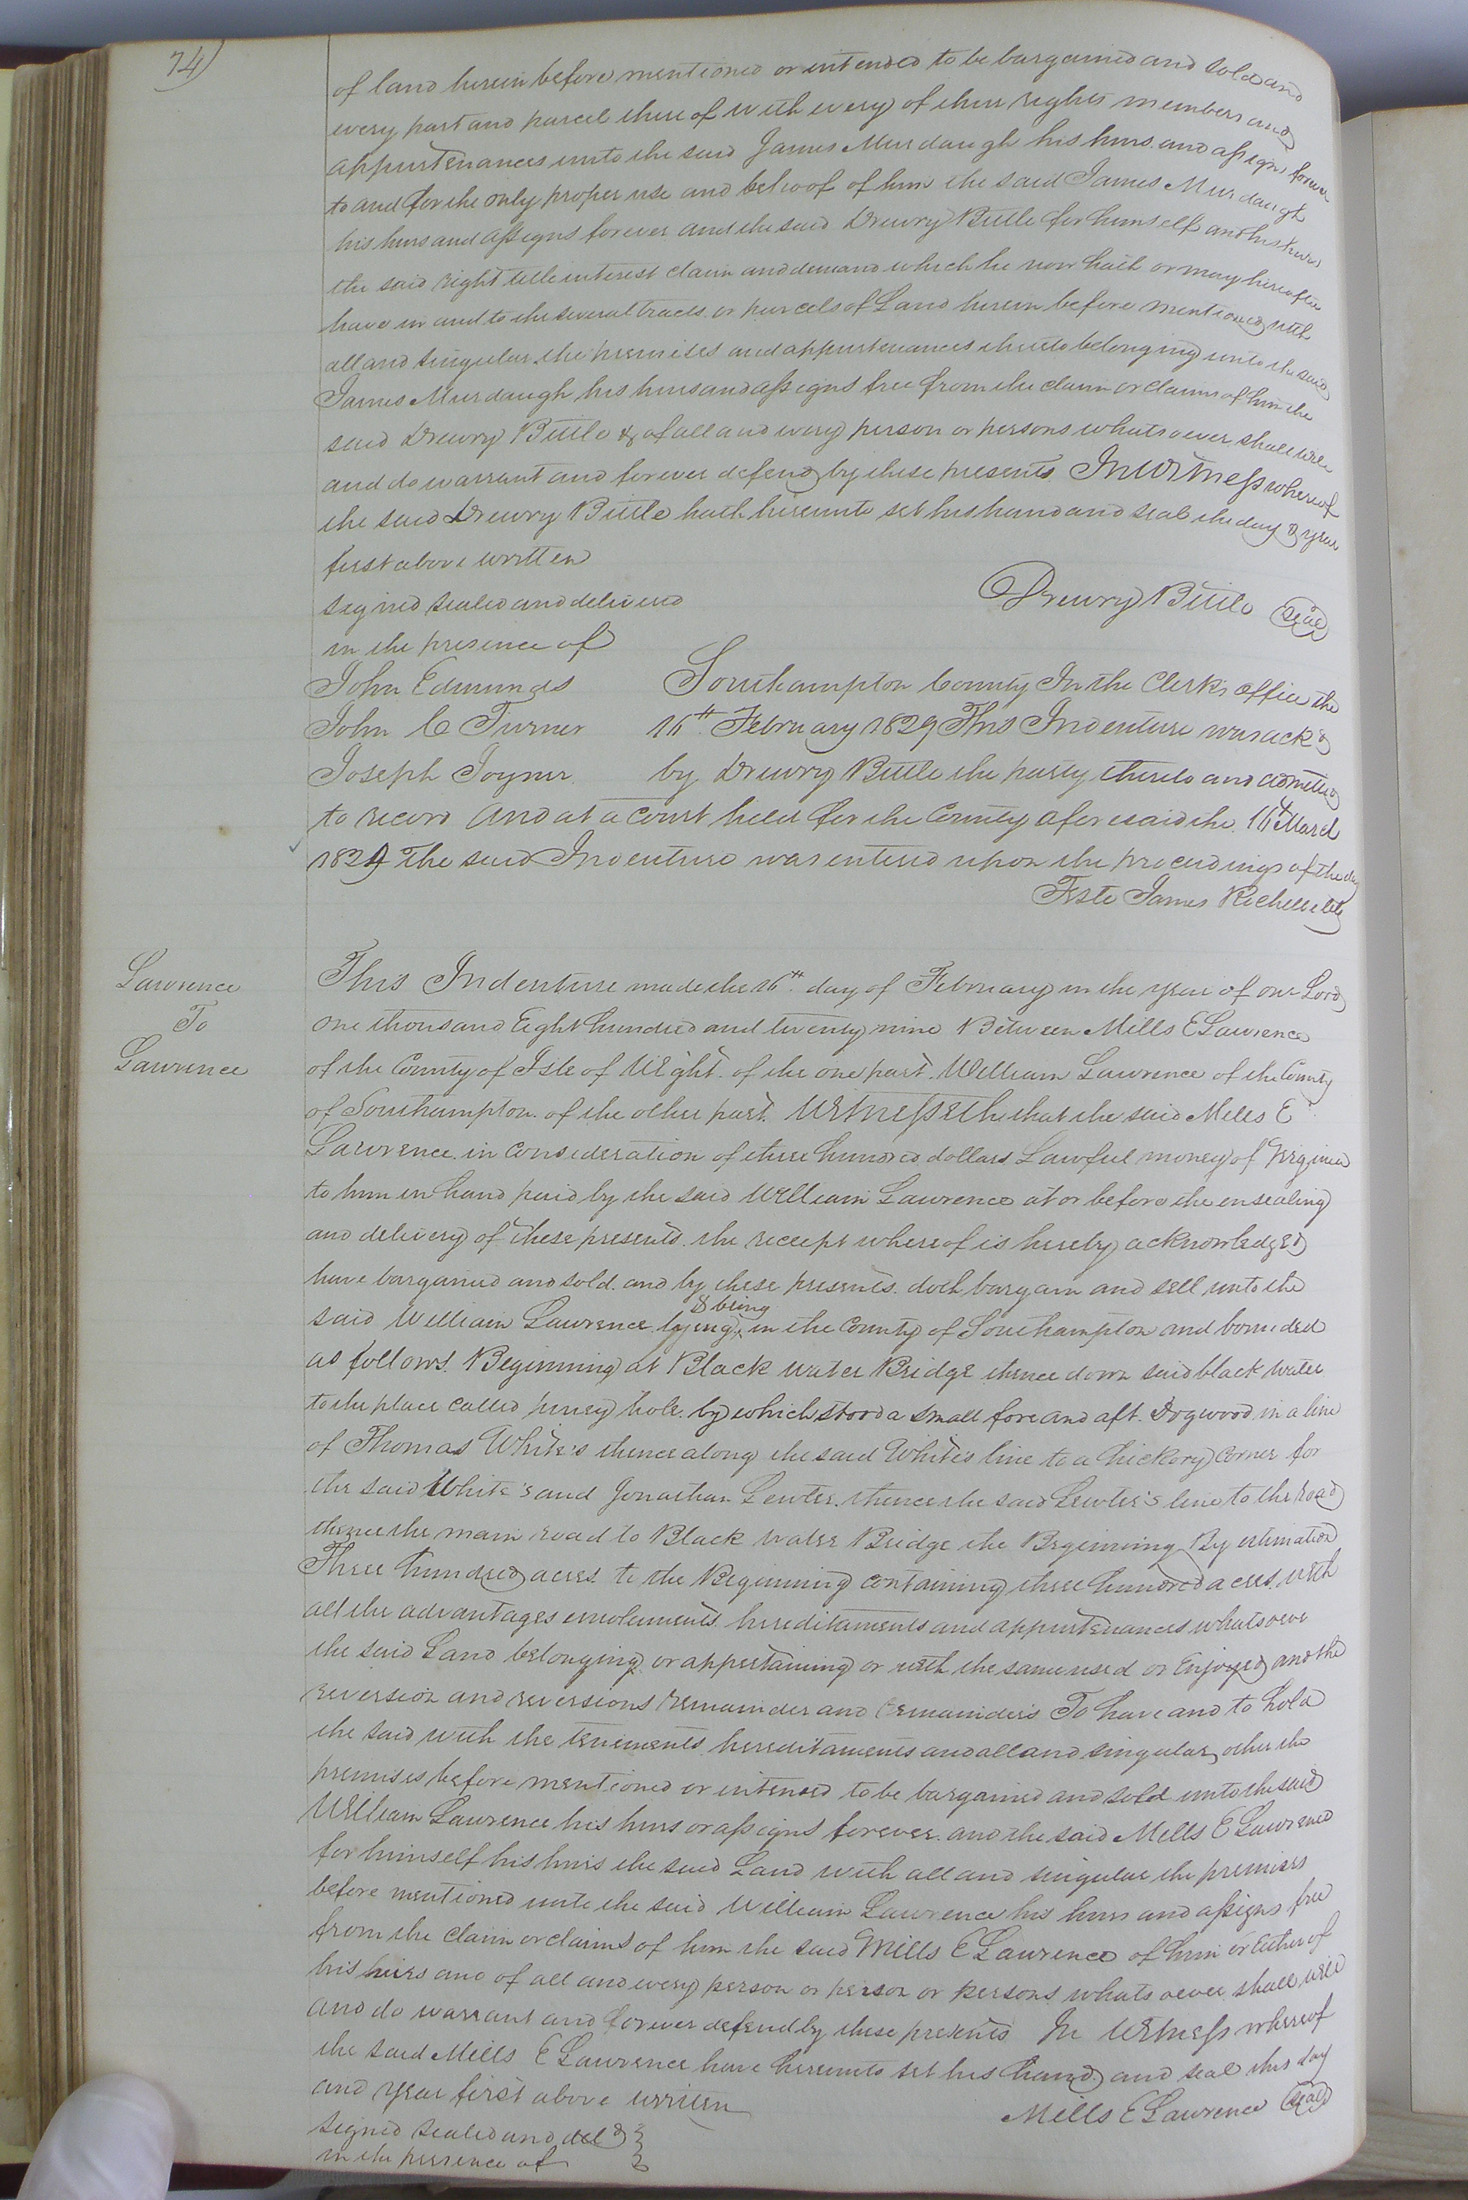 74)
of land herein before mentioned or intended to be bargained and sold and
every part and parcel there of with every of their rights members and
appurtenances unto the said James Murdaugh his heirs and assigns forever
to and for the only proper use and behoof of him the said James Murdaugh
his heirs and assigns forever and the said Drewry Bittle for himself and his heirs
the said right title interest claim and demand which he now hath or may hereafter
have in and to the several tracts or parcels of Land herein before mentioned with
all and singular the premises and appurtenances thereto belonging unto the said
James Murdaugh his heirs and assigns free from the claim or claims of him the
said Drewry Bittle & of all and every person or persons whatsoever shall will
and do warrant and forever defend by these presents In Witness whereof
the said Drewry Bittle hath hereunto set his hand and seal the day & year
first above written
signed sealed and delivered
Drewry Bittle seal
in the presence of
John Edmunds Southampton County In the Clerk's office the
John C Turner 16th February 1829 This Indenture was ack'd
Joseph Joyner by Drewry Bittle the party thereto and admitted
to record And at a Court held for the County aforesaid the 16th March
1829 The said Indenture was entered upon the proceedings of the day
Teste James Rochelle clk
Lawrence
To
Lawrence
This Indenture made the 16th day of February in the year of our Lord
one thousand Eight hundred and twenty nine Between Mills E Lawrence
of the County of Isle of Wight of the one part William Lawrence of the County
of Southampton of the other part. Witnesseth that the said Mills E
Lawrence in consideration of three hundred dollars Lawful money of Virginia
to him in hand paid by the said William Lawrence at or before the ensealing
and delivery of these presents the receipt whereof is hereby acknowledged
have bargained and sold and by these presents doth bargain and sell unto the
said William Lawrence lying & being in the County of Southampton and bounded
as follows Beginning at Black water Bridge thence down said black water
to the place called hole by which stood a small fore and aft Dogwood in a line
of Thomas White's thence along the said White's line to a hickory corner for
the said White's and Jonathan Lewter thence the said Lewter's line to the road
thence the main road to Black water Bridge the Beginning By estimation
Three hundred acres to the Beginning containing three hundred acres with
all the advantages emoluments hereditaments and appurtenances whatsoever
the said Land belonging or appertaining or with the same used or Enjoyed and the
reversion and reversions remainder and remainders To have and to hold
the said with the tenements hereditaments and all and singular other the
premises before mentioned or intended to be bargained and sold unto the said
William Lawrence his heirs or assigns forever and the said Mills E Lawrence
for himself his heirs the said Land with all and singular the premises
before mentioned unto the said William Lawrence his heirs and assigns free
from the claim or claims of him the said Mills E Lawrence of him or Either of
his heirs and of all and every person or person or persons whatsoever shall will
and do warrant and forever defend by these presents In Witness whereof
the said Mills E Lawrence have hereunto set his hand and seal this day
and year first above written
Mills E Lawrence seal
signed sealed and del'd
in the presence of